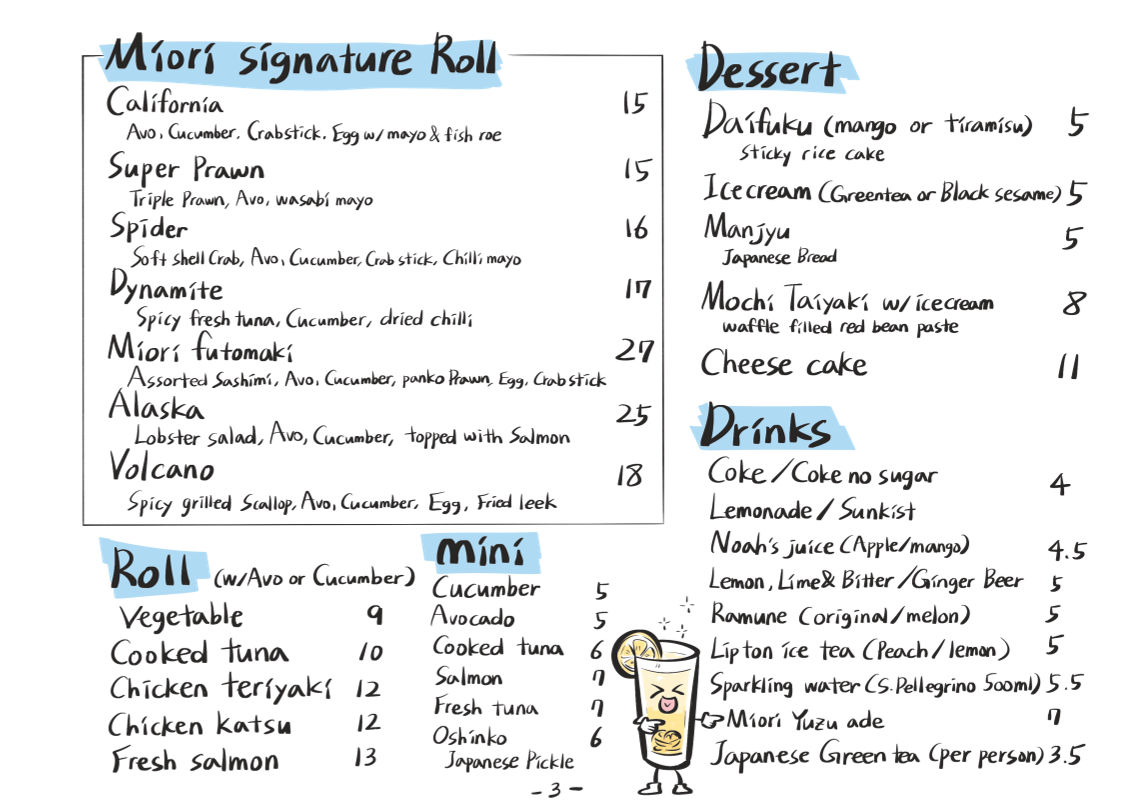 Miori signature Roll
California 15
Avo, Cucumber, Crabstick, Egg w/ mayo & fish roe
Super Prawn 15
Triple Prawn, Avo, wasabi mayo
Spider 16
Soft shell Crab, Avo, Cucumber, Crab stick, Chilli mayo
Dynamite 17
Spicy fresh tuna, Cucumber, dried chilli
Miori futomaki 27
Assorted Sashimi, Avo, Cucumber, panko Prawn, Egg, Crabstick
Alaska 25
Lobster salad, Avo, Cucumber, topped with Salmon
Volcano 18
Spicy grilled Scallop, Avo, Cucumber, Egg, Fried leek
Roll (w/Avo or Cucumber)
Vegetable 9
Cooked tuna 10
Chicken teriyaki 12
Chicken katsu 12
Fresh salmon 13
mini
Cucumber 5
Avocado 5
Cooked tuna 6
Salmon 7
Fresh tuna 7
Oshinko 6
Japanese Pickle
Dessert
Daifuku (mango or tiramisu) 5
Sticky rice cake
Icecream (Greentea or Black sesame) 5
Manjyu 5
Japanese Bread
Mochi Taiyaki w/ icecream 8
waffle filled red bean paste
Cheese cake 11
Drinks
Coke / Coke no sugar 4
Lemonade / Sunkist
Noah's juice (Apple/mango) 4.5
Lemon, Lime & Bitter / Ginger Beer 5
Ramune (original/melon) 5
Lipton ice tea (Peach/lemon) 5
Sparkling water (S.Pellegrino 500ml) 5.5
Miori Yuzu ade 7
Japanese Green tea (per person) 3.5
- 3 -